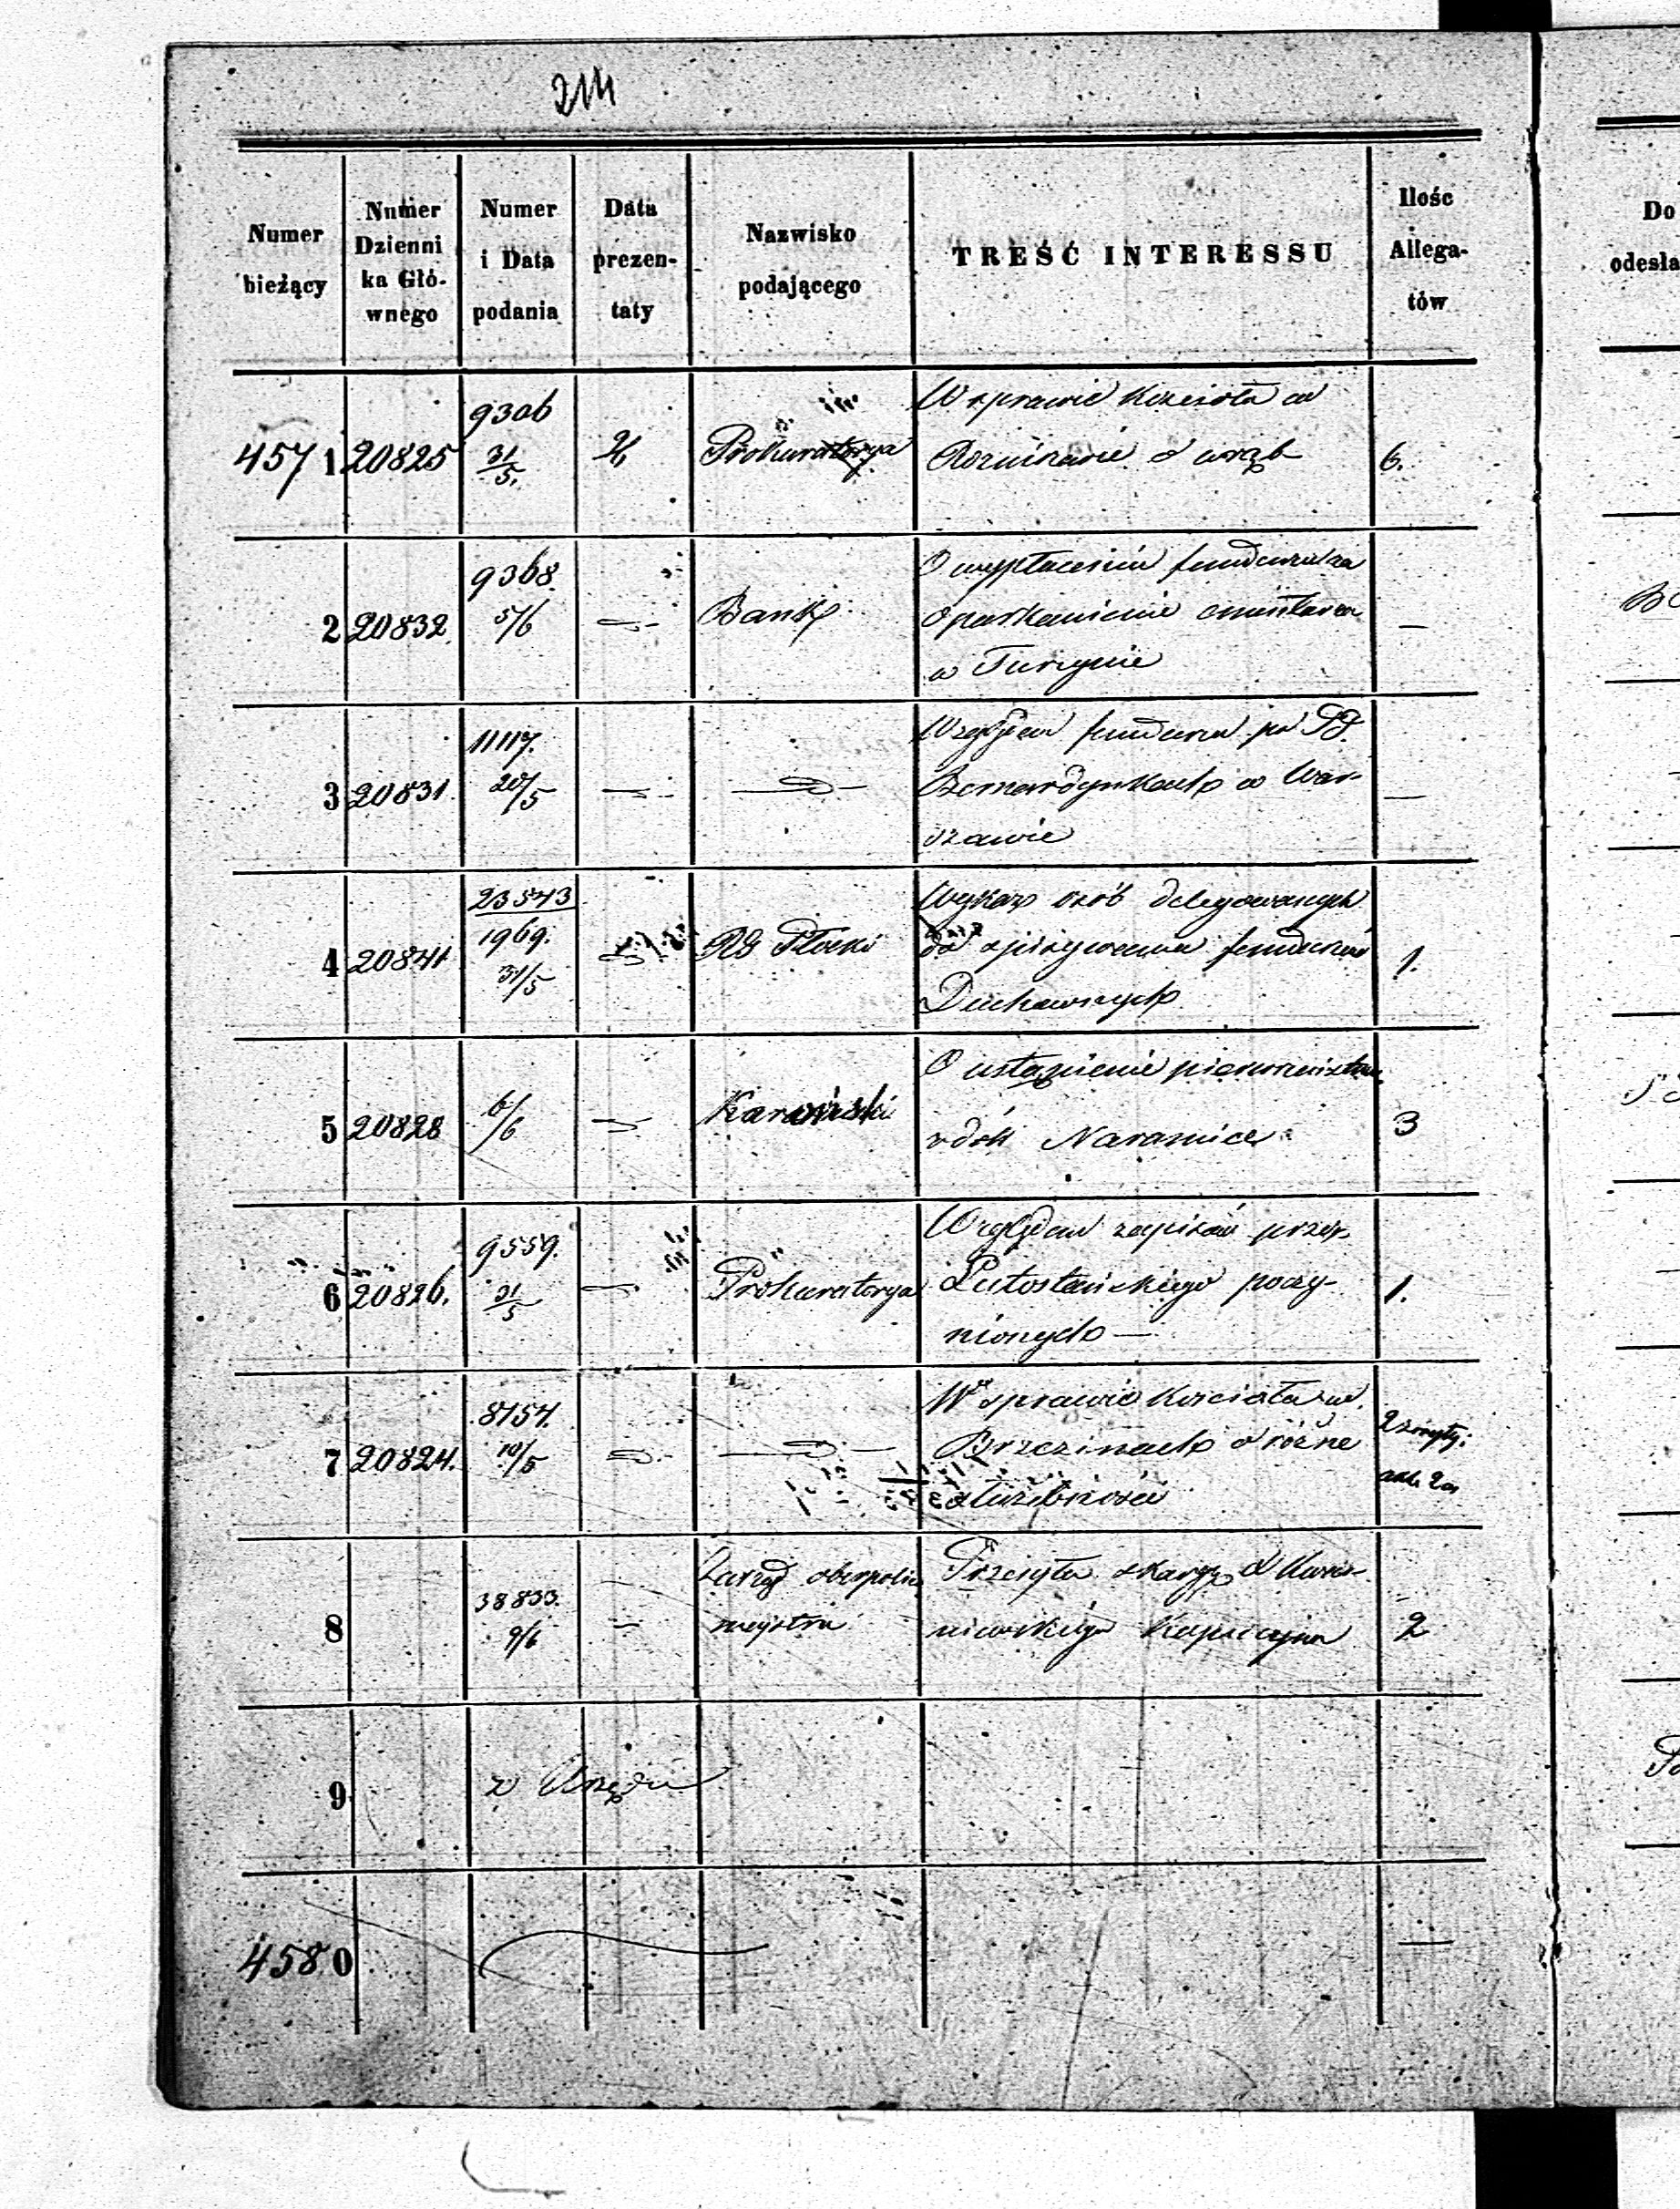 214
Numer bieżący
Numer Dzienni
ka Głó-
wnego
Numer
i Data
podania
Data
prezen-
taty
Nazwisko
podającego
TREŚĆ INTERESSU
Ilośc
Allega-
tów
Do
odesła
4571 20825 9306 31/5. Prokuratorya 6.
W sprawie Kościoła w
o wrąb
2 20832 9368. 5/6 — Bank —
O wypłacenie funduszu na
oparkanienie cmentarza
w Turzynie
3 20831. 11117. 20/5 — — —
Względem funduszu po PP.
Bernardynkach w War-
szawie
4 20841 23543 1969. 31/5 — RG Płocki 1.
Wykaz osób delegowanych
do spisywania funduszów
Duchownych
5 20828 6/6 — 3
O ustąpienie pierwszeństwa
z dóbr Naramice
6 20826. 9559. 31/5 — Prokuratorya 1.
Względem zapisów przez
Lutosławskiego poczy-
nionych —
7 20824. 8154. 10/5 — —
W sprawie Kościoła we
Brzezinach o różne
służebności
2 zeszyty:
8 38833. 9/6 — Zarząd oberpolic
mejstra 2
Przesyła skargę
niewskiego Kapucyna
9 z Urzędu
4580 —